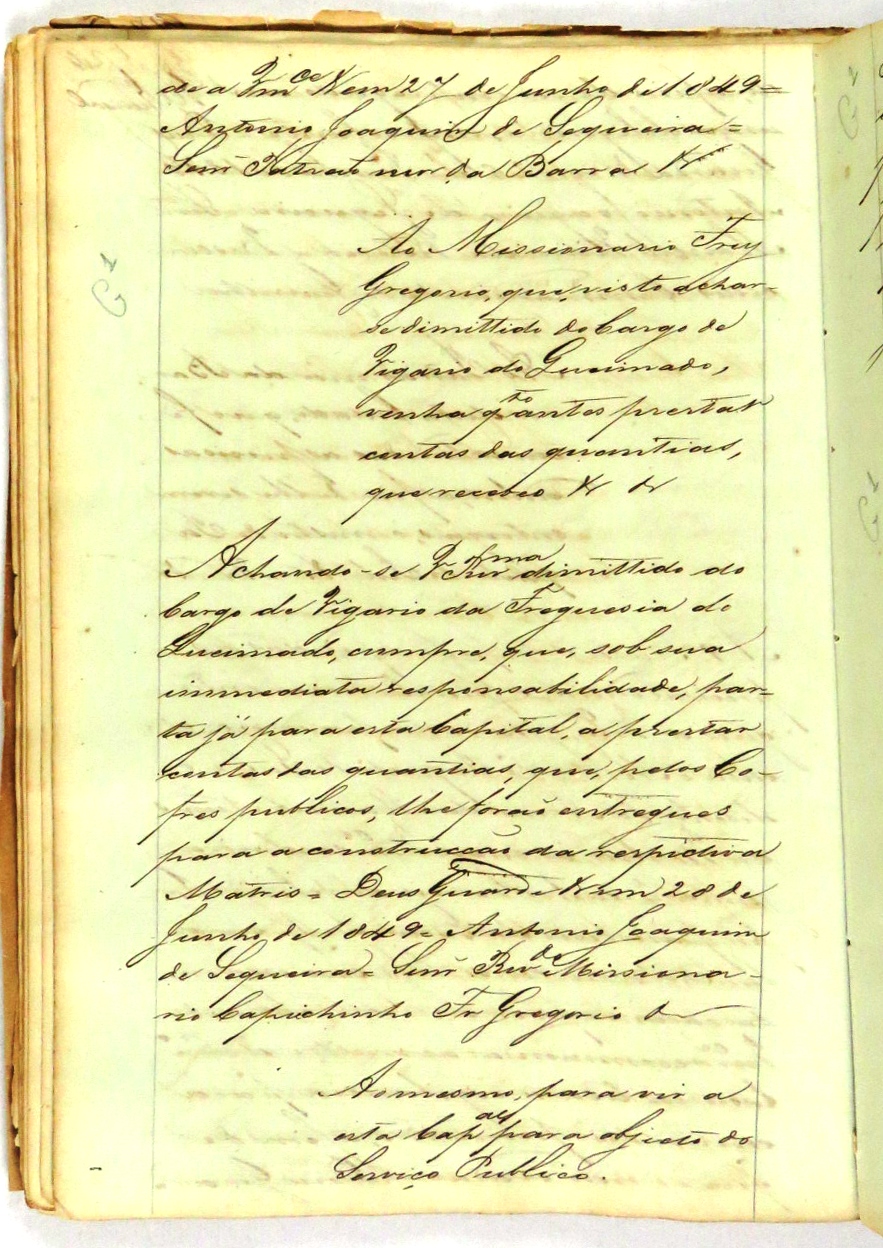 de a Vmce &em 27 de Junho de 1849=
Antonio Joaquim de Sequeira=
Senr Patrão mor da Barra &
Ao Missionario Frey
Gregorio, que, visto achar-
se dimittido do Cargo de
Vigario do Queimado,
venha qto antes prestar
contas das quantias,
que recebeo & &
Achando-se V Revma dimittido do
Cargo de Vigario da Freguesia do
Queimado, cumpre, que, sob sua
immediata responsabilidade, par=
ta já para esta Capital, a prestar
contas das quantias, que, pelos Co-
fres publicos, lhe forão entregues
para a construcção da respectiva
Matris= Deus Guarde & em 28 de
Junho de 1849= Antonio Joaquim
de Sequeira= Senr Revdo Missiona-
rio Capuchinho Fr Gregorio &
Ao mesmo, para vir a
esta Capal para objecto do
Serviço Publico.